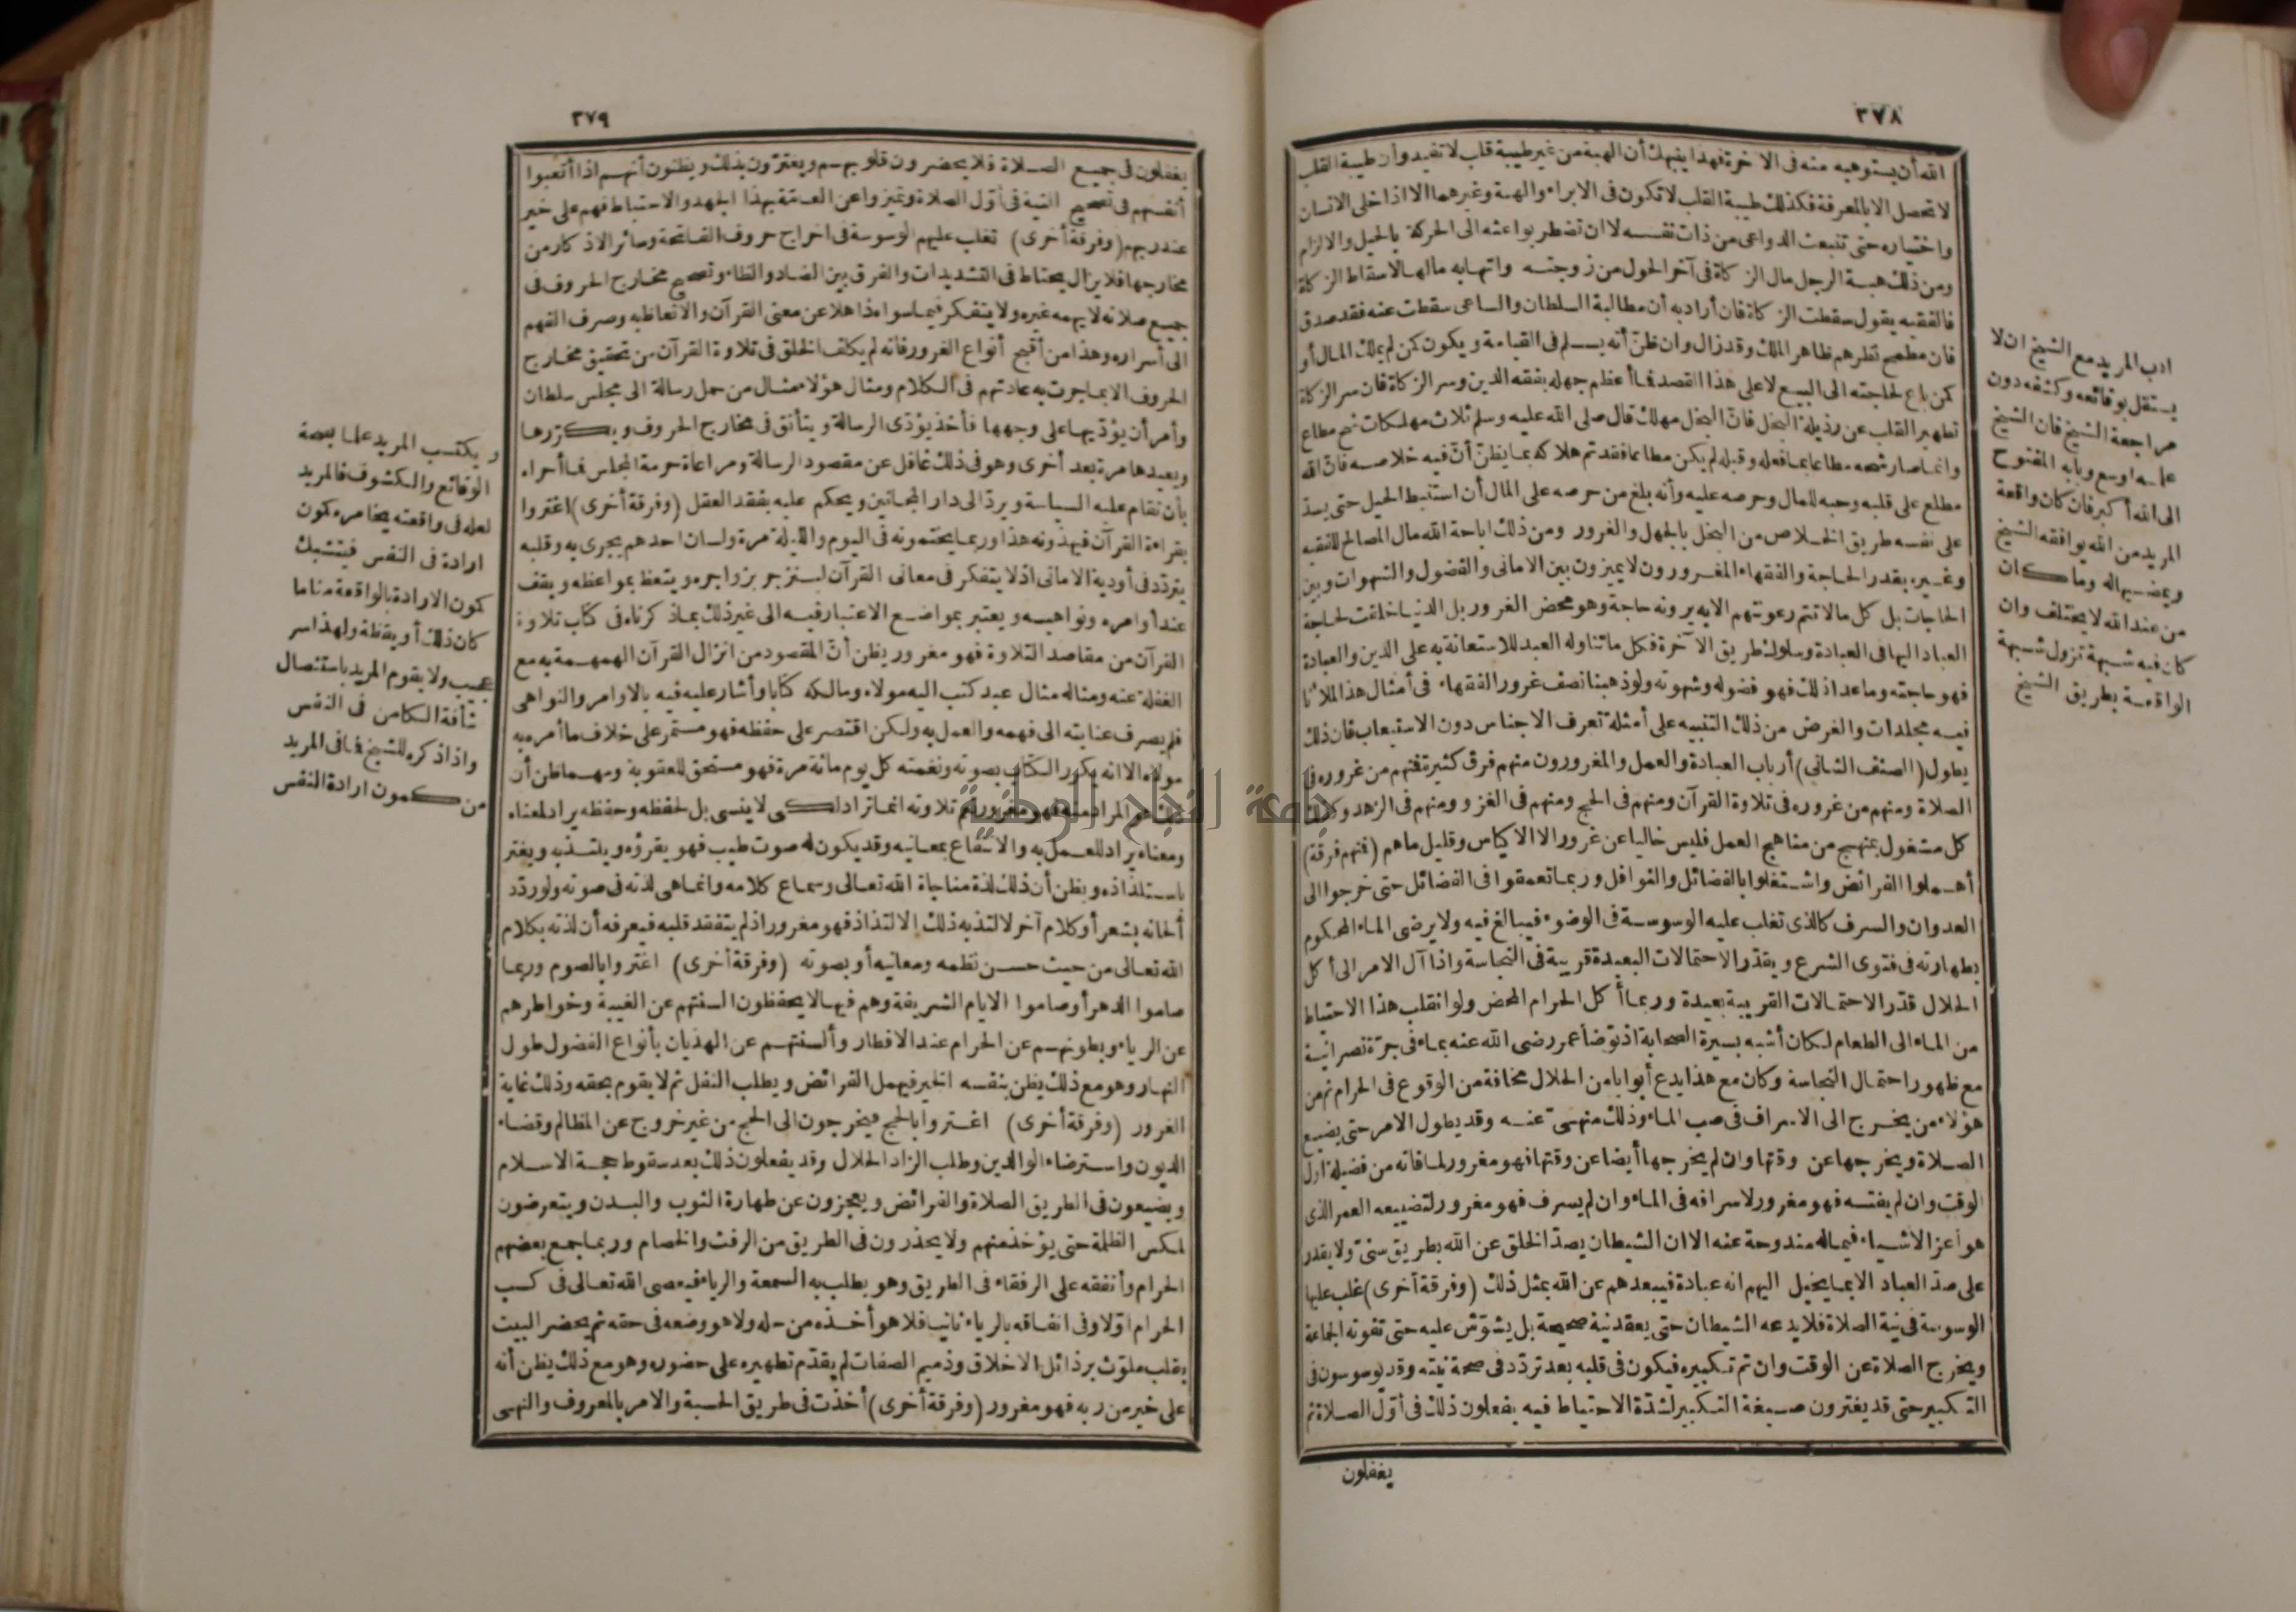 ٣٧٨
الله أن يستوهبه منه فى الآخرة فهذا ينبهك أن الهبة من غير طيبة قلب لا تفيد وأن طيبة القلب
لا تحصل الا بالمعرفة فكذلك طيبة القلب لا تكون فى الابراء والهبة وغيرهما الا اذا خلى الانسان
واختياره حتى تنبعث الدواعى من ذات نفسه لا ان تضطر بواعثه الى الحركة بالحيل والالزام
ومن ذلك هبة الرجل مال الزكاة فى آخر الحول من زوجته واتهابه مالها لاسقاط الزكاة
فالفقيه يقول سقطت الزكاة فان أراد به أن مطالبة السلطان والساعى سقطت عنه فقد صدق
فان مطمح نظرهم ظاهر الملك وقد زال وان ظنّ أنه يسلم فى القيامة ويكون كمن لم يملك المال أو
كمن باع لحاجته الى البيع لا على هذا القصد فما أعظم جهله بفقه الدين وسر الزكاة فان سر الزكاة
تطهير القلب عن رذيلة البخل فانّ البخل مهلك قال صلى الله عليه وسلم ثلاث مهلكات شح مطاع
وانما صار شحه مطاعا بما فعله وقبله لم يكن مطاعا فقد تم هلاكه بما يظنّ أنّ فيه خلاصه فانّ الله
مطلع على قلبه وحبه للمال وحرصه عليه وأنه بلغ من حرصه على المال أن استنبط الحيل حتى يسدّ
على نفسه طريق الخلاص من البخل بالجهل والغرور ومن ذلك اباحة الله مال المصالح للفقيه
وغيره بقدر الحاجة والفقهاء المغرورون لا يميزون بين الامانى والفضول والشهوات وبين
الحاجات بل كل ما لا تتم رعونتهم الا به يرونه حاجة وهو محض الغرور بل الدنيا خلقت لحاجة
العباد اليها فى العبادة وسلوك طريق الآخرة فكل ما تناوله العبد للاستعانة به على الدين والعبادة
فهو حاجته وما عدا ذلك فهو فضوله وشهوته ولو ذهبنا نصف غرور الفقهاء فى أمثال هذا لملأنا
فيه مجلدات والغرض من ذلك التنبيه على أمثلة تعرف الاجناس دون الاستيعاب فان ذلك
يطول (الصنف الثانى) أرباب العبادة والعمل والمغرورون منهم فرق كثيرة فمنهم من غروره فى
الصلاة ومنهم من غروره فى تلاوة القرآن ومنهم فى الحج ومنهم فى الغزو ومنهم فى الزهد وكذلك
كل مشغول بمنهج من مناهج العمل فليس خاليا عن غرور الا الاكياس وقليل ما هم (فمنهم فرقة)
أهملوا الفرائض واشتغلوا بالفضائل والنوافل وربما تعمقوا فى الفضائل حتى خرجوا الى
العدوان والسرف كالذى تغلب عليه الوسوسة فى الوضوء فيبالغ فيه ولا يرضى الماء المحكوم
بطهارته فى فتوى الشرع ويقدّر الاحتمالات البعيدة قريبة فى النجاسة واذا آل الامر الى أكل
الحلال قدّر الاحتمالات القريبة بعيدة وربما أكل الحرام المحض ولو انقلب هذا الاحتياط
من الماء الى الطعام لكان أشبه بسيرة الصحابة اذ توضأ عمر رضى الله عنه بماء فى جرّة نصرانية
مع ظهور احتمال النجاسة وكان مع هذا يدع أبوابا من الحلال مخافة من الوقوع فى الحرام ثم من
هؤلاء من يخرج الى الاسراف فى صب الماء وذلك منهىّ عنه وقد يطول الامر حتى يضيع
الصلاة ويخرجها عن وقتها وان لم يخرجها أيضا عن وقتها فهو مغرور لما فاته من فضيلة أول
الوقت وان لم يفته فهو مغرور لاسرافه فى الماء وان لم يسرف فهو مغرور لتضييعه العمر الذى
هو أعز الاشياء فيما له مندوحة عنه الا ان الشيطان يصدّ الخلق عن الله بطريق سنىّ ولا يقدر
على صدّ العباد الا بما يخيل اليهم انه عبادة فيبعدهم عن الله بمثل ذلك (وفرقة أخرى) غلب عليها
الوسوسة فى نية الصلاة فلا يدعه الشيطان حتى يعقد نية صحيحة بل يشوّش عليه حتى تفوته الجماعة
ويخرج الصلاة عن الوقت وان تم تكبيره فيكون فى قلبه بعد تردّد فى صحة نيته وقد يوسوسون فى
التكبير حتى قد يغيرون صيغة التكبير لشدّة الاحتياط فيه يفعلون ذلك فى أوّل الصلاة ثم
يغفلون
ادب المريد مع الشيخ ان لا
يستقل بوقائعه وكشفه دون
مراجعة الشيخ فان الشيخ
علمه اوسع وبابه المفتوح
الى الله أكبر فان كان واقعة
المريد من الله يوافقه الشيخ
ويمضيها له وما كان
من عند الله لا يختلف وان
كان فيه شبهة تزول شبهة
الواقعة بطريق الشيخ
٣٧٩
يغفلون فى جميع الصلاة فلا يحضرون قلوبهم ويغترّون بذلك ويظنون أنهم اذا أتعبوا
أنفسهم فى تصحيح النية فى أوّل الصلاة وتميزوا عن العامّة بهذا الجهد والاحتياط فهم على خير
عند ربهم (وفرقة أخرى) تغلب عليهم الوسوسة فى اخراج حروف الفاتحة وسائر الاذكار من
مخارجها فلا يزال يحتاط فى التشديدات والفرق بين الضاد والظاء وتصحيح مخارج الحروف فى
جميع صلاته لا يهمه غيره ولا يتفكر فيما سواه ذاهلا عن معنى القرآن والاتعاظ به وصرف الفهم
الى أسراره وهذا من أقبح أنواع الغرور فانه لم يكلف الخلق فى تلاوة القرآن من تحقيق مخارج
الحروف الا بما جرت به عادتهم فى الكلام ومثال هؤلاء مثال من حمل رسالة الى مجلس سلطان
وأمر أن يؤدّيها على وجهها فأخذ يؤدّى الرسالة ويتأنق فى مخارج الحروف ويكرّرها
ويعيدها مرة بعد أخرى وهو فى ذلك غافل عن مقصود الرسالة ومراعاة حرمة المجلس فما أحراه
بأن تقام عليه السياسة ويردّ الى دار المجانين ويحكم عليه بفقد العقل (وفرقة أخرى) اغتروا
بقراءة القرآن فيهذونه هذا وربما يختمونه فى اليوم والليلة مرة ولسان احدهم يجرى به وقلبه
يتردّد فى أودية الامانى اذ لا يتفكر فى معانى القرآن لينزجر بزواجره ويتعظ بمواعظه ويقف
عند أوامره ونواهيه ويعتبر بمواضع الاعتبار فيه الى غير ذلك بما ذكرناه فى كتاب تلاوة
القرآن من مقاصد التلاوة فهو مغرور يظن أنّ المقصود من انزال القرآن الهمهمة به مع
الغفلة عنه ومثاله مثال عبد كتب اليه مولاه ومالكه كتابا وأشار عليه فيه بالاوامر والنواهى
فلم يصرف عنايته الى فهمه والعمل به ولكن اقتصر على حفظه فهو مستمر على خلاف ما أمره به
مولاه الا انه يكرر الكتاب بصوته ونغمته كل يوم مائة مرة فهو مستحق للعقوبة ومهما ظن أن
ذلك هو المراد منه فهو مغرور نعم تلاوته انما تراد لكى لا ينسى بل لحفظه وحفظه يراد لمعناه
ومعناه يراد للعمل به والانتفاع بمعانيه وقد يكون له صوت طيب فهو يقرؤه ويلتذ به ويغتر
باستلذاذه ويظن أن ذلك لذة مناجاة الله تعالى وسماع كلامه وانما هى لذته فى صوته ولو ردّد
ألحانه بشعر أو كلام آخر لالتذ به ذلك الالتذاذ فهو مغرور اذ لم يتفقد قلبه فيعرفه أن لذته بكلام
الله تعالى من حيث حسن نظمه ومعانيه أو بصوته (وفرقة أخرى) اغتروا بالصوم وربما
صاموا الدهر أو صاموا الايام الشريفة وهم فيها لا يحفظون ألسنتهم عن الغيبة وخواطرهم
عن الرياء وبطونهم عن الحرام عند الافطار وألسنتهم عن الهذيان بأنواع الفضول طول
النهار وهو مع ذلك يظن بنفسه الخير فيهمل الفرائض ويطلب النفل ثم لا يقوم بحقه وذلك غاية
الغرور (وفرقة أخرى) اغتروا بالحج فيخرجون الى الحج من غير خروج عن المظالم وقضاء
الديون واسترضاء الوالدين وطلب الزاد الحلال وقد يفعلون ذلك بعد سقوط حجة الاسلام
ويضيعون فى الطريق الصلاة والفرائض ويعجزون عن طهارة الثوب والبدن ويتعرضون
لمكس الظلمة حتى يؤخذ منهم ولا يحذرون فى الطريق من الرفث والخصام وربما جمع بعضهم
الحرام وأنفقه على الرفقاء فى الطريق وهو يطلب به السمعة والرياء فيعصى الله تعالى فى كسب
الحرام اوّلا وفى انفاقه بالرياء ثانيا فلا هو أخذه من حله ولا هو وضعه فى حقه ثم يحضر البيت
بقلب ملوّث برذائل الاخلاق وذميم الصفات لم يقدّم تطهيره على حضوره وهو مع ذلك يظن أنه
على خير من ربه فهو مغرور (وفرقة أخرى) أخذت فى طريق الحسبة والامر بالمعروف والنهى
ويكتسب المريد علما بصحة
الوقائع والكشوف فالمريد
لعله فى واقعته يخامره كون
ارادة فى النفس فيتشبك
كون الارادة بالواقعة مناما
كان ذلك أو يقظة ولهذا سر
عجيب ولا يقوم المريد باستئصال
شأفة الكامن فى النفس
واذا ذكره للشيخ فما فى المريد
من كمون ارادة النفس
جامعة النجاح الوطنية